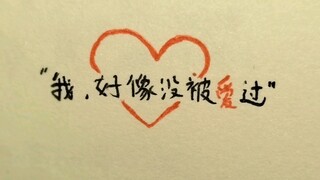 “我，好像没被愛过”